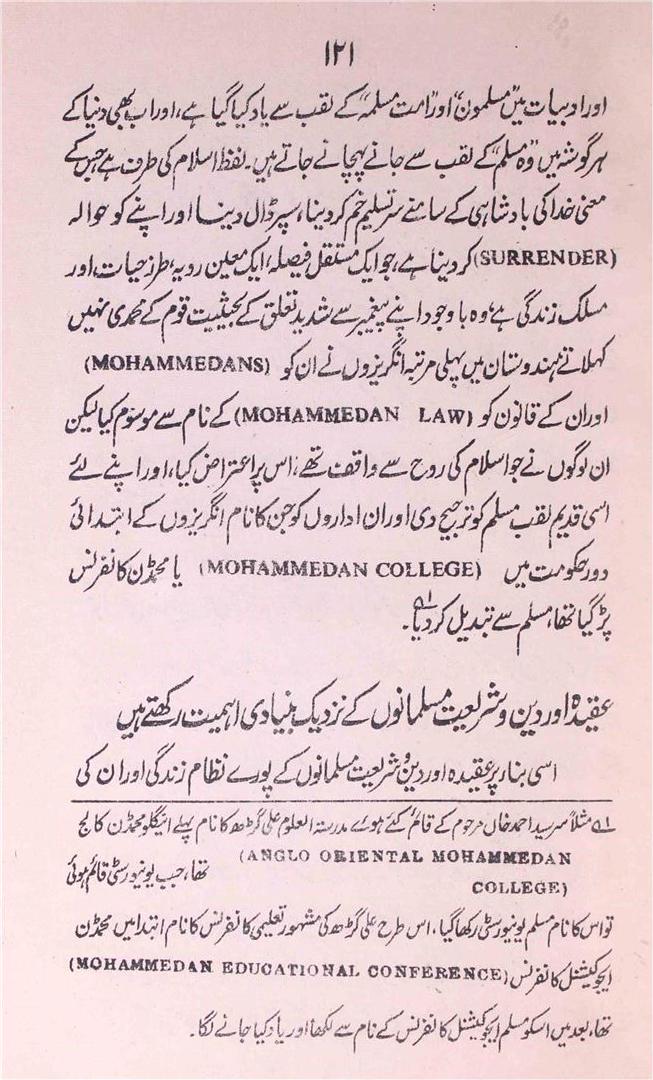 ۱۲۱
اور ادبیات میں "مسلمون" اور "امت مسلمہ" کے لقب سے یاد کیا گیا ہے، اور اب بھی دنیا کے
ہر گوشہ میں وہ "مسلم" کے لقب سے جانے پہچانے جاتے ہیں۔ لفظ اسلام کی طرف ہے جس کے
معنی خدا کی بادشاہی کے سامنے سر تسلیم خم کر دینا، سپر ڈال دینا اور اپنے کو حوالہ
(SURRENDER) کر دینا ہے، جو ایک مستقل فیصلہ، ایک معین رویہ، طرز حیات، اور
مسلک زندگی ہے، وہ باوجود اپنے پیغمبر سے شدید تعلق کے بحیثیت قوم کے محمدی نہیں
کہلاتے ہندوستان میں پہلی مرتبہ انگریزوں نے ان کو (MOHAMMEDANS)
اور ان کے قانون کو (MOHAMMEDAN LAW) کے نام سے موسوم کیا لیکن
ان لوگوں نے جو اسلام کی روح سے واقف تھے، اس پر اعتراض کیا، اور اپنے لئے
اسی قدیم لقب مسلم کو ترجیح دی اور ان اداروں کو جن کا نام انگریزوں کے ابتدائی
دور حکومت میں (MOHAMMEDAN COLLEGE) یا محمڈن کانفرنس
پڑ گیا تھا، مسلم سے تبدیل کر دیا۱؎۔
عقیدہ اور دین و شریعت مسلمانوں کے نزدیک بنیادی اہمیت رکھتے ہیں
اسی بناء پر عقیدہ اور دین و شریعت مسلمانوں کے پورے نظام زندگی اور ان کی
۱؎ مثلاً سر سید احمد خاں مرحوم کے قائم کئے ہوئے مدرستہ العلوم علی گڑھ کا نام پہلے اینگلو محمڈن کالج
(ANGLO ORIENTAL MOHAMMEDAN
COLLEGE) تھا، جب یونیورسٹی قائم ہوئی
تو اس کا نام مسلم یونیورسٹی رکھا گیا، اس طرح علی گڑھ کی مشہور تعلیمی کانفرنس کا نام ابتدا میں محمڈن
ایجوکیشنل کانفرنس (MOHAMMEDAN EDUCATIONAL CONFERENCE)
تھا، بعد میں اسکو مسلم ایجوکیشنل کانفرنس کے نام سے لکھا اور یاد کیا جانے لگا۔